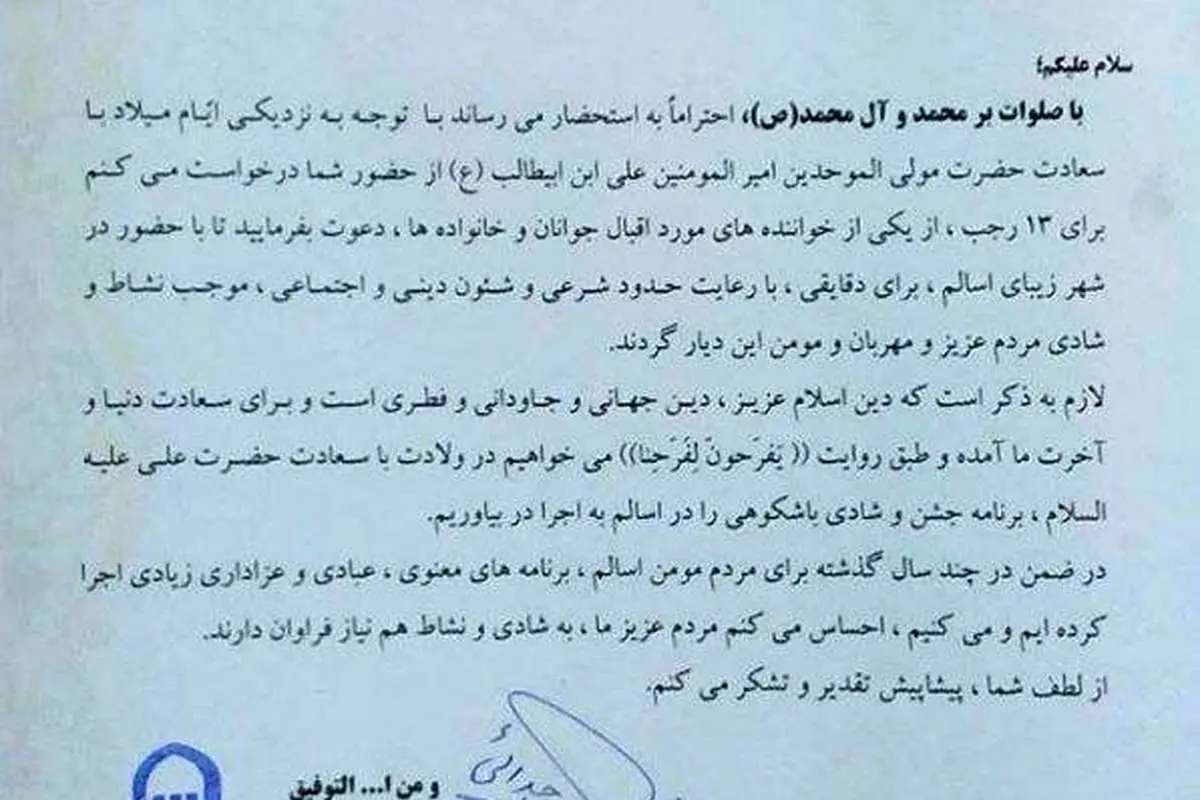 سلام علیکم؛
با صلوات بر محمد و آل محمد(ص)، احتراماً به استحضار می رساند با توجه به نزدیکی ایّام میلاد با
سعادت حضرت مولی الموحدین امیر المومنین علی ابن ابیطالب (ع) از حضور شما درخواست می کنم
برای ۱۳ رجب ، از یکی از خواننده های مورد اقبال جوانان و خانواده ها ، دعوت بفرمایید تا با حضور در
شهر زیبای اسالم ، برای دقایقی ، با رعایت حدود شرعی و شئون دینی و اجتماعی ، موجب نشاط و
شادی مردم عزیز و مهربان و مومن این دیار گردند.
لازم به ذکر است که دین اسلام عزیز ، دین جهانی و جاودانی و فطری است و برای سعادت دنیا و
آخرت ما آمده و طبق روایت (( یَفرَحونَ لِفَرَحِنا)) می خواهیم در ولادت با سعادت حضرت علی علیه
السلام ، برنامه جشن و شادی باشکوهی را در اسالم به اجرا در بیاوریم.
در ضمن در چند سال گذشته برای مردم مومن اسالم ، برنامه های معنوی ، عبادی و عزاداری زیادی اجرا
کرده ایم و می کنیم ، احساس می کنم مردم عزیز ما ، به شادی و نشاط هم نیاز فراوان دارند.
از لطف شما ، پیشاپیش تقدیر و تشکر می کنم.
و من ا... التوفیق